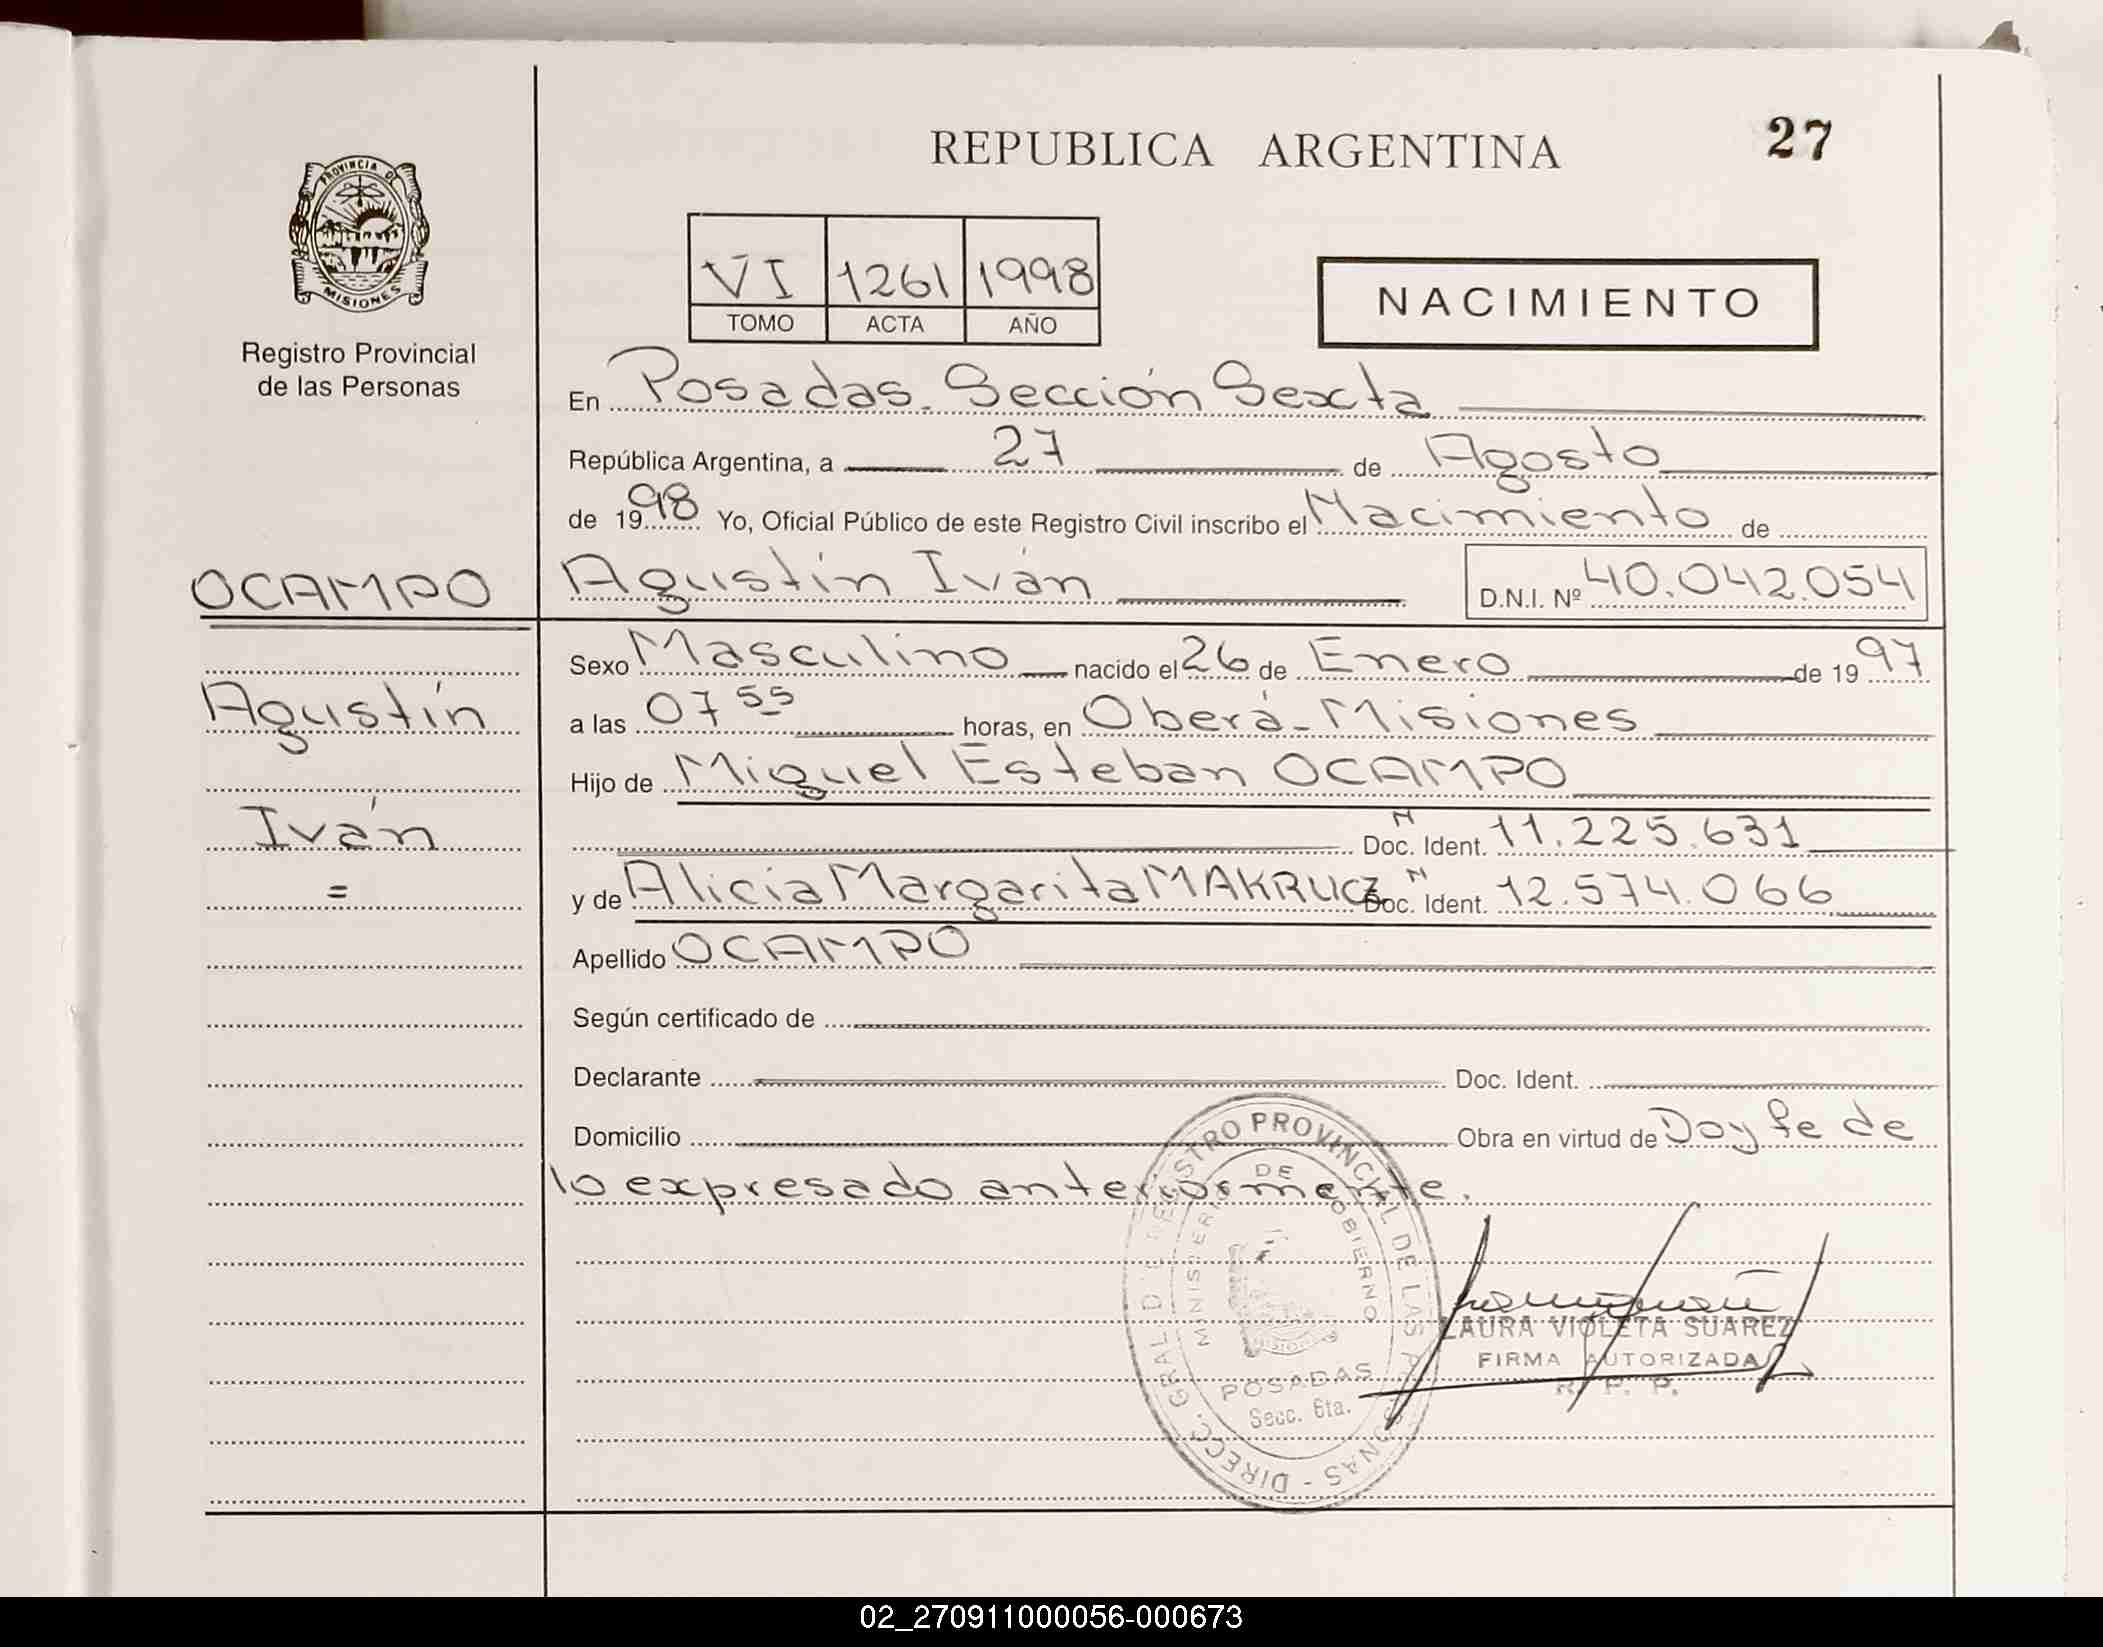 REPUBLICA ARGENTINA
27
PROVINCIA DE
MISIONES
Registro Provincial
de las Personas
VI 1261 1998
TOMO ACTA AÑO
NACIMIENTO
En Posadas. Sección Sexta
República Argentina, a 27 de Agosto
de 1998 Yo, Oficial Público de este Registro Civil inscribo el Nacimiento de
OCAMPO
Agustín
Iván
=
Agustín Iván D.N.I. Nº 40.042.054
Sexo Masculino nacido el 26 de Enero de 1997
a las 07 55 horas, en Oberá - Misiones
Hijo de Miguel Esteban OCAMPO
M
Doc. Ident. 11.225.631
y de Alicia Margarita MAKRUCZ M Doc. Ident. 12.574.066
Apellido OCAMPO
Según certificado de
Declarante Doc. Ident.
Domicilio Obra en virtud de Doy fe de
lo expresado anteriormente.
DIRECC. GRAL. DE REGISTRO PROVINCIAL DE LAS PERSONAS -
MINISTERIO DE GOBIERNO
POSADAS
Secc. 6ta.
LAURA VIOLETA SUAREZ
FIRMA AUTORIZADA
R. P. P.
02_270911000056-000673